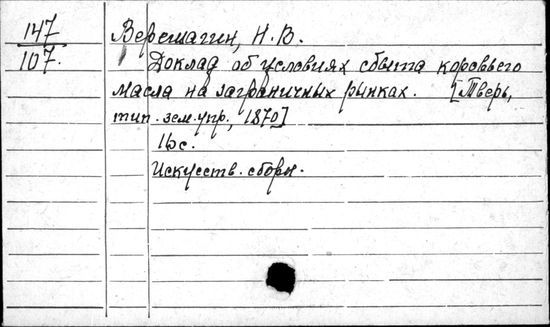 147 Верещагин, Н. В.
107. Доклад об условиях сбыта коровьего
масла на заграничных рынках. [Тверь,
тип. зем. упр., 1870]
16 с.
Искусств. сборн.